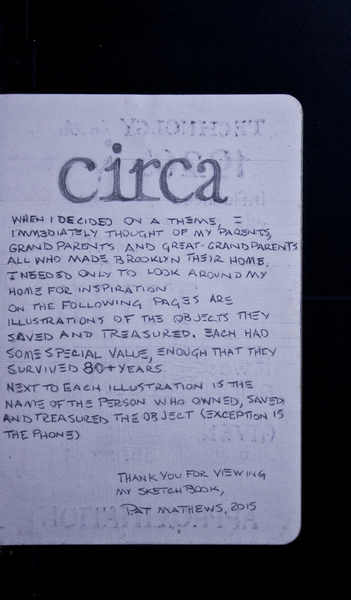 circa
WHEN I DECIDED ON A THEME, I
IMMEDIATELY THOUGHT OF MY PARENTS,
GRANDPARENTS AND GREAT-GRANDPARENTS
ALL WHO MADE BROOKLYN THEIR HOME.
I NEEDED ONLY TO LOOK AROUND MY
HOME FOR INSPIRATION
ON THE FOLLOWING PAGES ARE
ILLUSTRATIONS OF THE OBJECTS THEY
SAVED AND TREASURED. EACH HAD
SOME SPECIAL VALUE, ENOUGH THAT THEY
SURVIVED 80+ YEARS.
NEXT TO EACH ILLUSTRATION IS THE
NAME OF THE PERSON WHO OWNED, SAVED
AND TREASURED THE OBJECT (EXCEPTION IS
THE PHONE)
THANK YOU FOR VIEWING
MY SKETCHBOOK,
PAT MATHEWS, 2015